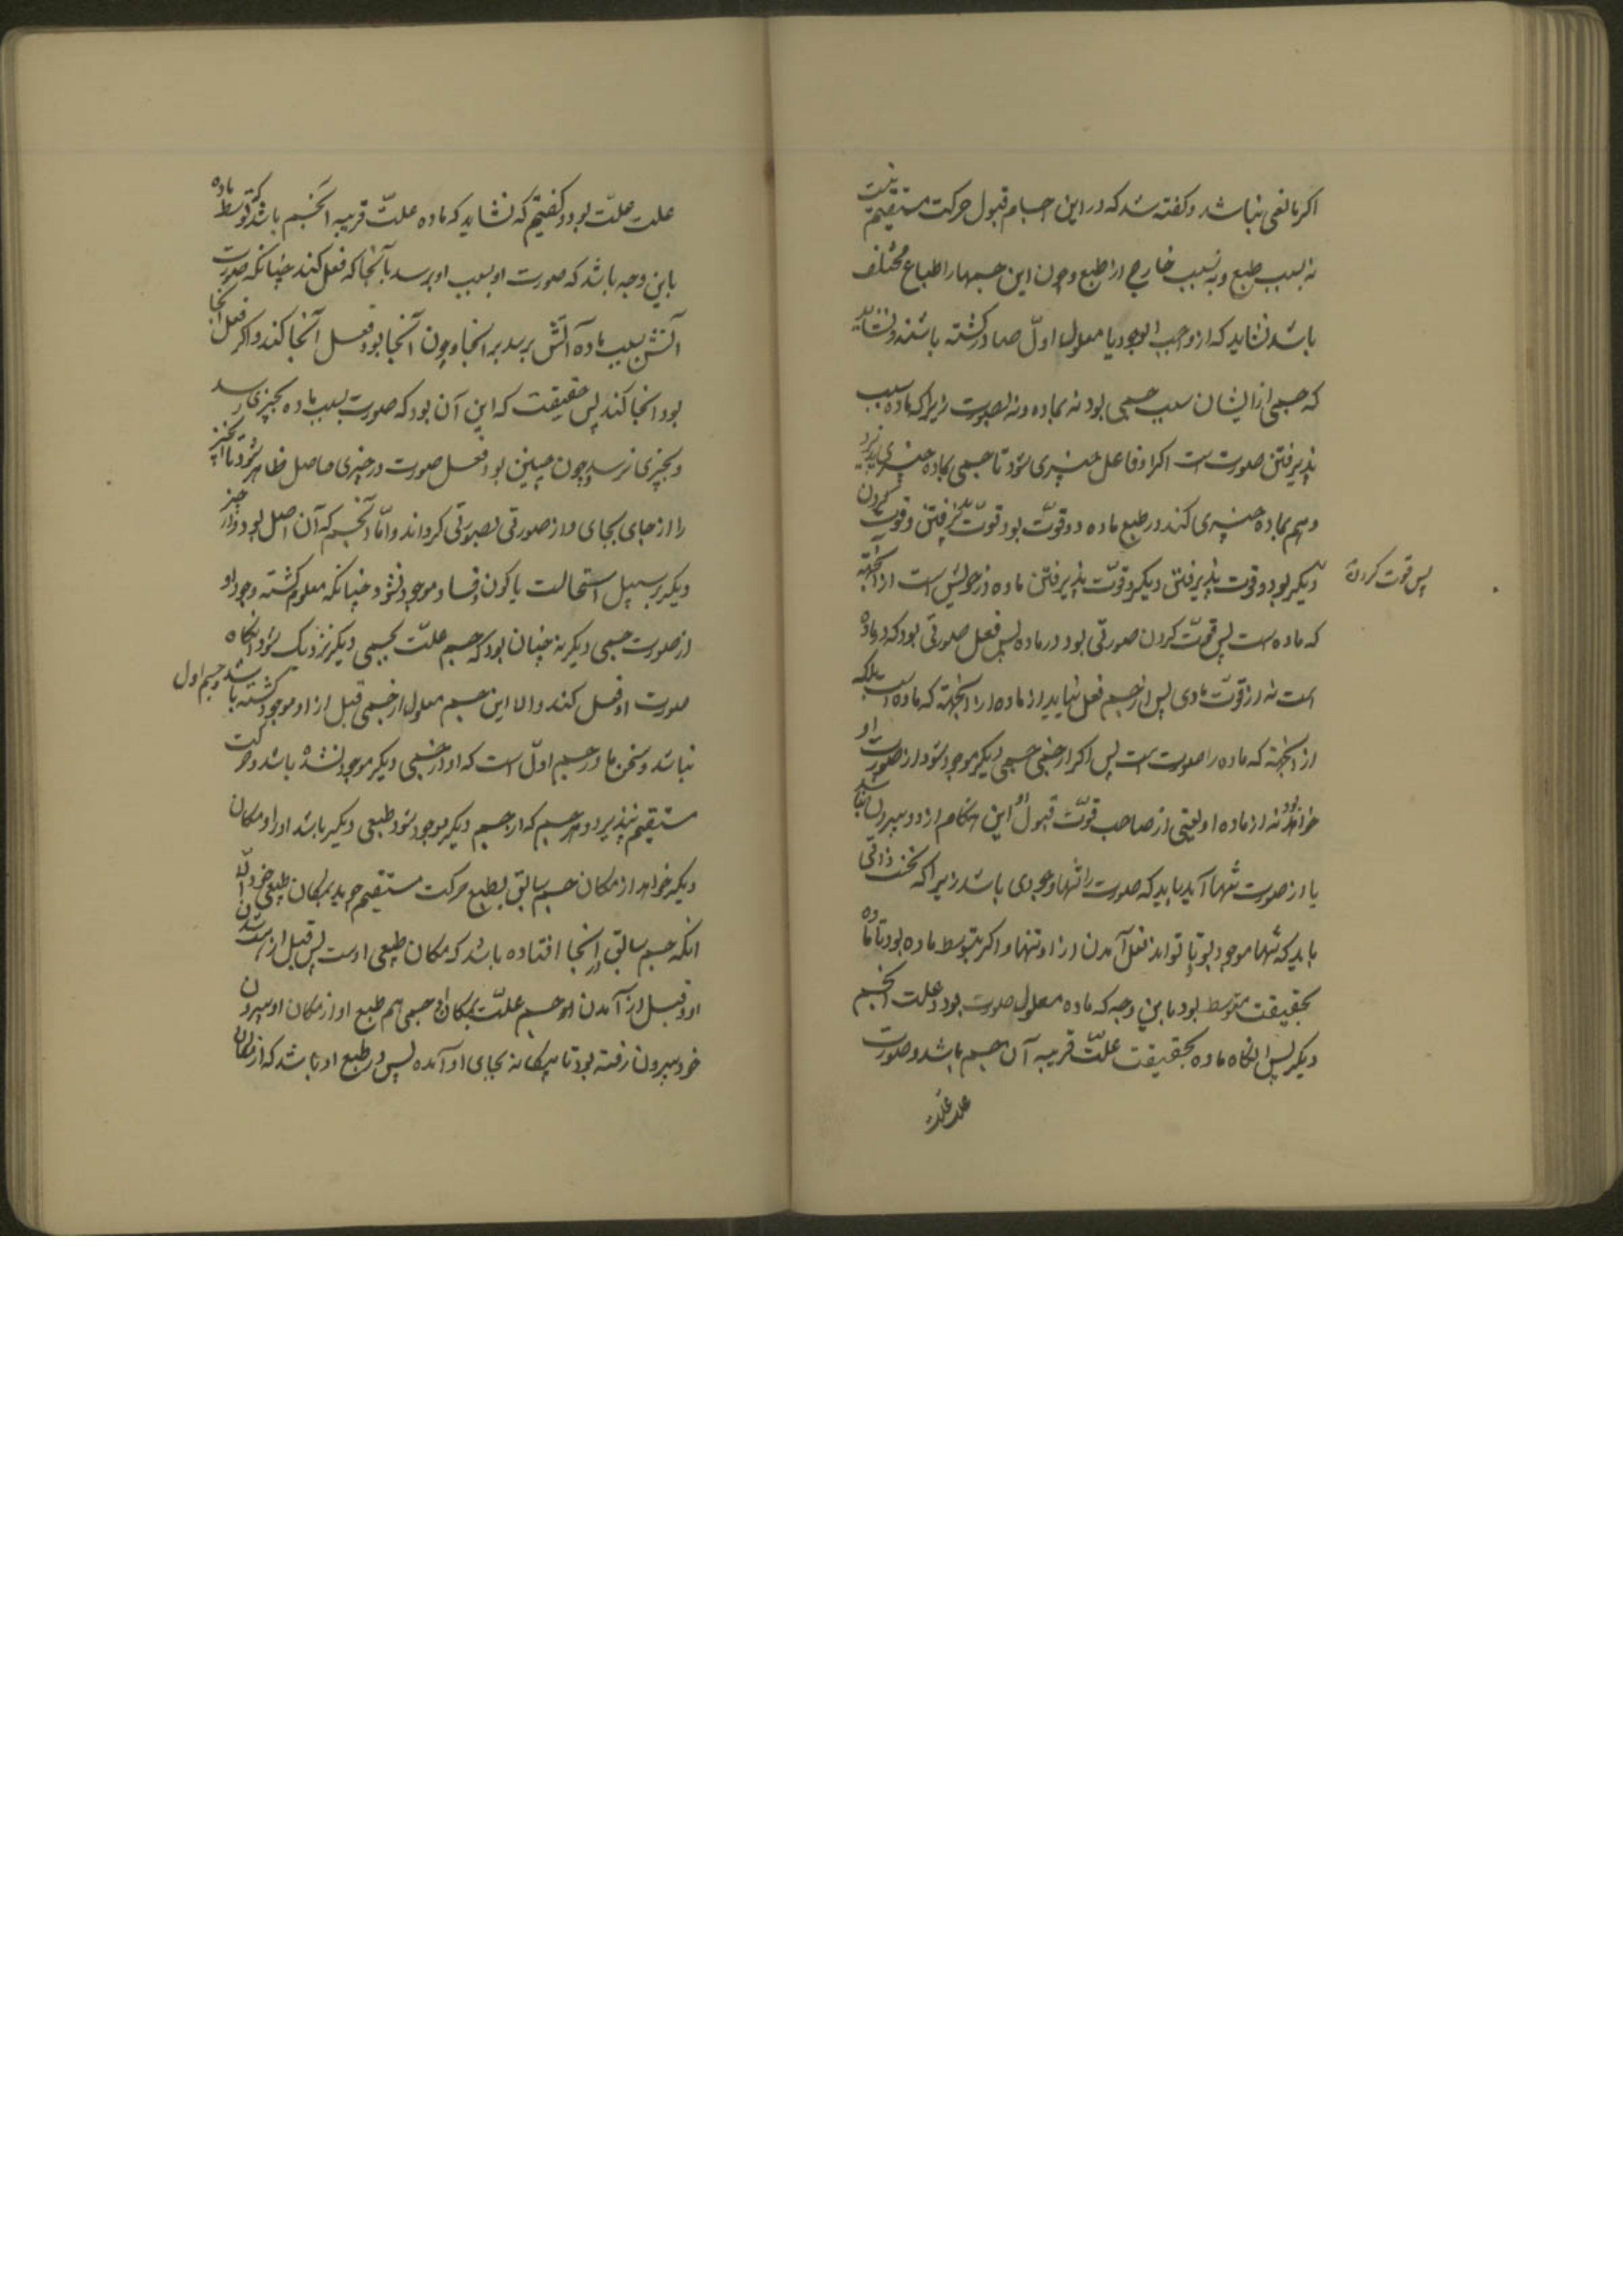 اکر مانعی نباشد و کفته شد که در این اجسام قبول حرکت مستقیم نیست
نه بسبب طبع و نه بسبب خارج از طبع و چون این جسمها را طباع مختلف
باشد نشاید که از واجب الوجود یا معلول اول صادر کشته باشند و نشاید
که جسمی از ایشان سبب جسمی بود نه بماده و نه بصورت زیرا که ماده سبب
پذیرفتن صورتست اکر او فاعل چیزی شود تا جسمی بماده چیزی پذیرد
و هم بماده چیزی کند در طبع ماده دو قوّت بود قوّت پذیرفتن و قوت کردن
دیکر بود و قوت پذیرفتن دیکر و قوّت پذیرفتن ماده در خویش است از آنجهة
پس قوت کردن
که ماده است پس قوّت کردن صورتی بود در ماده پس فعل صورتی بود که در ماده
است نه از قوّت مادی پس از جسم فعل نیاید از ماده او از آنجهة که ماده است بلکه
از آنجهة که ماده را صورتست پس اکر از جسمی جسمی دیکر موجود شود از صورت او
خواهد بود نه از ماده او یعنی از صاحب قوّت قبول و این هنکام از دو بیرون نباشد
یا از صورت تنها آید باید که صورت را تنها وجودی باشد زیرا که نخست ذاتی
باید که تنها موجود بود تا تواند فعل آمدن از او تنها و اکر بتوسط ماده بود تا ماده
بحقیقت متوسط بود باین وجه که ماده معلول صورت بود و علت آنجسم
دیکر پس آنکاه ماده بحقیقت علّت قریبه آن جسم باشد و صورت
علت علّت
علت علّت بود و کفتیم که نشاید که ماده علّت قریبه آنجسم باشد که توسط ماده
باین وجه باشد که صورت او بسبب او برسد بآنجا که فعل کند چنانکه صورت
آتش بسبب ماده آتش برسد بر آنجا و چون آنجا بود فعل آنجا کند و اکر فعل اینجا
بود اینجا کند پس حقیقت که این آن بود که صورت بسبب ماده بچیزی رسد
و بچیزی نرسد و چون چنین بود فعل صورت در چیزی حاصل ظاهر شود تا آنچیز
را از جای بجای و از صورتی بصورتی کرداند و امّا آنجسم که آن اصل بود و از چیز
دیکر بر سبیل استحالت یا کون و فساد موجود نشود چنانکه معلوم کشته وجود او
از صورت جسمی دیکر نه چنان بود که جسم علّت بجسمی دیکر نزدیک شود آنکاه
صورت او فعل کند و الا این جسم معلول از جسمی قبل از او موجود کشته باشد و جسم اول
نباشد و سخن ما در جسم اوّل است که او از جسمی دیکر موجود نشده باشد و حرکت
مستقیم نپذیرد و هر جسم که از جسم دیکر موجود شود طبعی دیکر باشد او را و مکان
دیکر خواهد از مکان جسم سابق بطبع حرکت مستقیم جوید بمکان طبیعی خود والا
آنکه جسم سابق در آنجا افتاده باشد که مکان طبیعی اوست پس قبل از شدن
او و قبل از آمدن او جسم علّت بمکان او جسمی هم طبع او از مکان او بیرون
خود بیرون رفته بود تا بیکانه بجای او آمده پس در طبع او باشد که از مکان